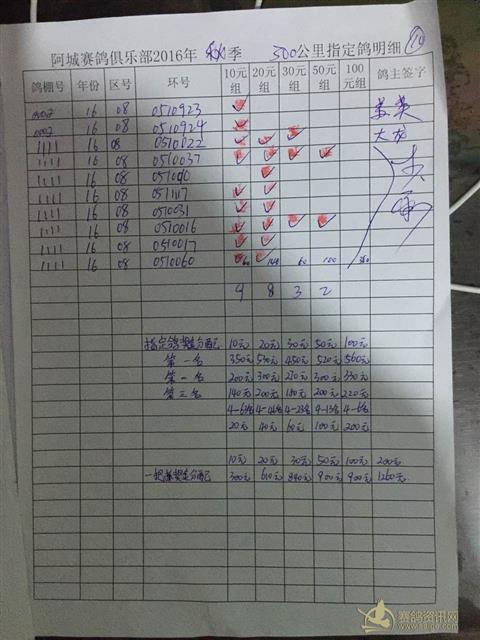 阿城赛鸽俱乐部2016年 秋季 300公里指定鸽明细 10
鸽棚号 年份 区号 环号 10元组 20元组 30元组 50元组 100元组 鸽主签字
16 08 0510923
0002 16 08 0510924
1111 16 08 0510022 大龙
1111 16 08 0510037
1111 16 08
1111 16 08 051117
1111 16 08 0510031
1111 16 08 0510016
1111 16 08 0510017
1111 16 08 0510060 60
9 8 3 2
指定鸽奖金分配 10元 20元 30元 50元 100元
第一名 350元 530元 450元 520元 560元
第一名 200元 300元 270元 300元 330元
第三名 140元 200元 180元 200元 220元
4-23名 4-13名 4-6名
20元 40元 60元 100元 200元
10元 20元 30元 50元 100元 200元
奖金分配 300元 610元 840元 900元 900元 1260元
赛鸽资讯网